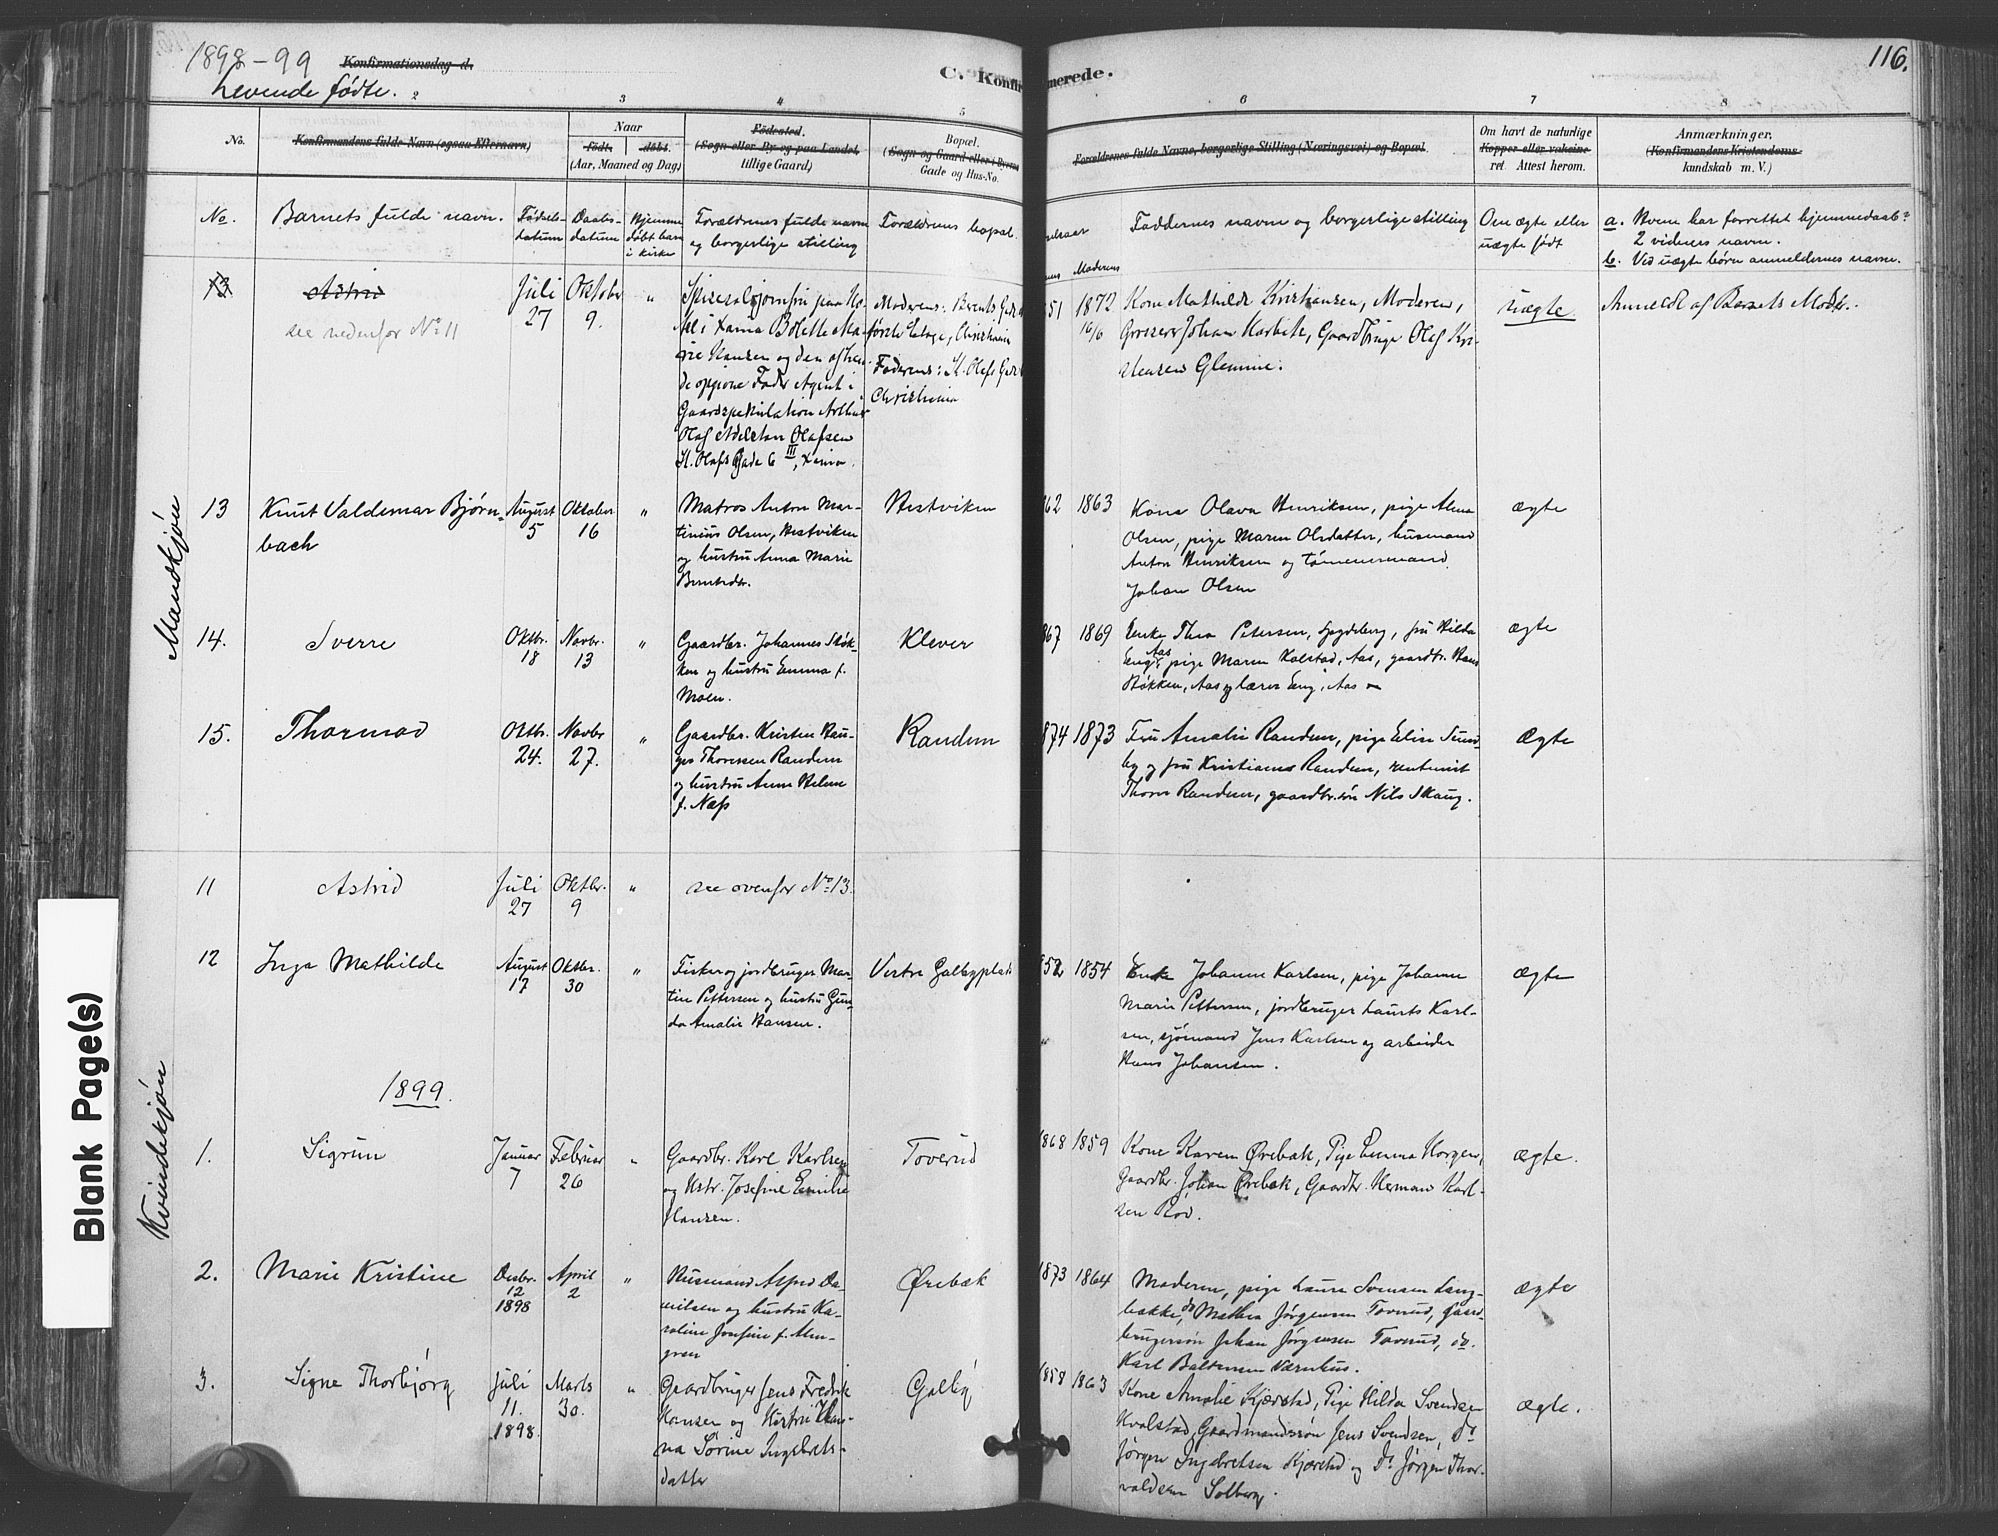 1898-99
Konfirmationsdag d.
Levende fødte.
C. Konfirmerede.
116.
2
3
4
5
6
7
8
No.
Konfirmandens fulde Navn (ogsaa Efternavn)
Naar
født.
døbt.
(Aar, Maaned og Dag)
Fødested.
(Sogn eller By og paa Landet,
tillige Gaard)
Bopæl.
(Sogn og Gaard eller i Byerne
Gade og Hus-No.
Forældrenes fulde Navne, borgerlige Stilling (Næringsvei) og Bopæl.
Om havt de naturlige
Kopper eller vakcineret
Attest herom.
Anmærkninger.
(Konfirmandens Kristendomskundskab
m. V.)
No.
Barnets fulde navn.
Fødselsdatum
Daabsdatum
Hjemmedøbt
barn
i kirke
Forældrenes fulde navn
og borgerlige stilling
Forældrenes bopæl.
Moderens
Faddernes navne og borgerlige stilling
Om ægte eller
uægte født
a. Hvem har forrettet hjemmedaab?
2 vidners navn.
b. Ved uægte børn anmeldernes navne.
13
Astrid
see nedenfor No 11
Juli
27
Oktober
9.
"
Moderens: Berents Gade
første Etage, Christiania
Faderens: St. Olafs Gade
Christiania
Gaardspekulation Arthur
Olaf Adelstan Olafsen
St. Olafs Gade 6 III, Xania.
51
1872
16/6
Kone Mathilde Kristiansen, Moderen,
Grosserer Johan Karbeth, Gaardbruger Olaf Kristensen
Glemine.
uægte
Anmeldt af Barnets Moder.
Mandkjøn
13
Knut Valdemar Bjørnbach
August
5
Oktober
16
"
Matros Anton Martinius
Olsen, Hestviken
og hustru Anna Marie
Berntsdtr.
Hestviken
862
1863
Kone Olava Henriksen, pige Alma
Olsen, pige Maren Olsdatter, husmand
Anton Henriksen og tømmermand
Johan Olsen
ægte
14.
Sverre
Oktbr.
18
Novbr.
13
"
Gaardbr. Johannes Støkken
og hustru Emma f.
Moen.
Klever
867
1869
Enke Thea Petersen, Hogdeberg, fru Hilda
Eng, Aas pige Maren Kolstad, Aas, gaardbr. Hans
Støkken, Aas og lærer Eng, Aas
ægte
15.
Thormod
Oktbr.
24.
Novbr
27.
"
Gaardbr. Kristen Hauges
Thoresen Randem
og hustru Anne Helene
f. Næss
Randem
874
1873
Fru Amalie Randem, pige Elise Sundby
og fru Kristiane Randem, rentenist
Thorer Randem, gaardbr.søn Nils Skaug.
Ægte
11
Astrid
Juli
27
Oktbr.
9
"
see ovenfor No 13.
12
Inga Mathilde
August
17
Oktbr.
30
"
Fisker og jordbruger Martin
Pettersen og hustru Gunda
Amalie Hansen.
Vestre Galbyplads
852
1854
Enke Johanne Karlsen, pige Johanne
Marie Pettersen, jordbruger Laurits Karlsen,
sjømand Jens Karlsen og arbeider
Hans Johansen.
ægte
Kvindekjøn
1899.
1.
Sigrun
Januar
7
Februar
26
"
Gaardbr. Karl Karlsen
og Hstr. Josefine Emilie
Hansen.
Toverud
1868
1859
Kone Karen Ørebæk, Pige Emma Horgen,
Gaardbr. Johan Ørebæk, Gaardbr. Herman Karlsen
Rød.
ægte.
2.
Marie Kristine
Decbr.
12
1898
April
2
"
Husmand Alfred Danilsen
og hustru Karoline
Josefine f. Almgren
Ørebæk
1873
1864
Moderen, pige Laura Svensen Langbakke,
do Mathea Jørgensen Tovrud, gaardbrugersøn
Johan Jørgensen Tovrud, do.
Karl Baltersen Værnhus.
ægte
3.
Signe Thorbjørg
Juli
11.
1898
Marts
30.
"
Gaardbruger Jens Fredrik
Hansen og Hustru Hanna
Sørine Ingebretsdatter
Galby
1858
1863
Kone Amalie Kjærstad, Pige Hilda Svendsen
Kvalstad, Gaardmandssøn Jens Svendsen, Do
Jørgen Ingebretsen Kjærstad og Do Jørgen Thorvaldsen
Solberg.
ægte.
Blank Page(s)